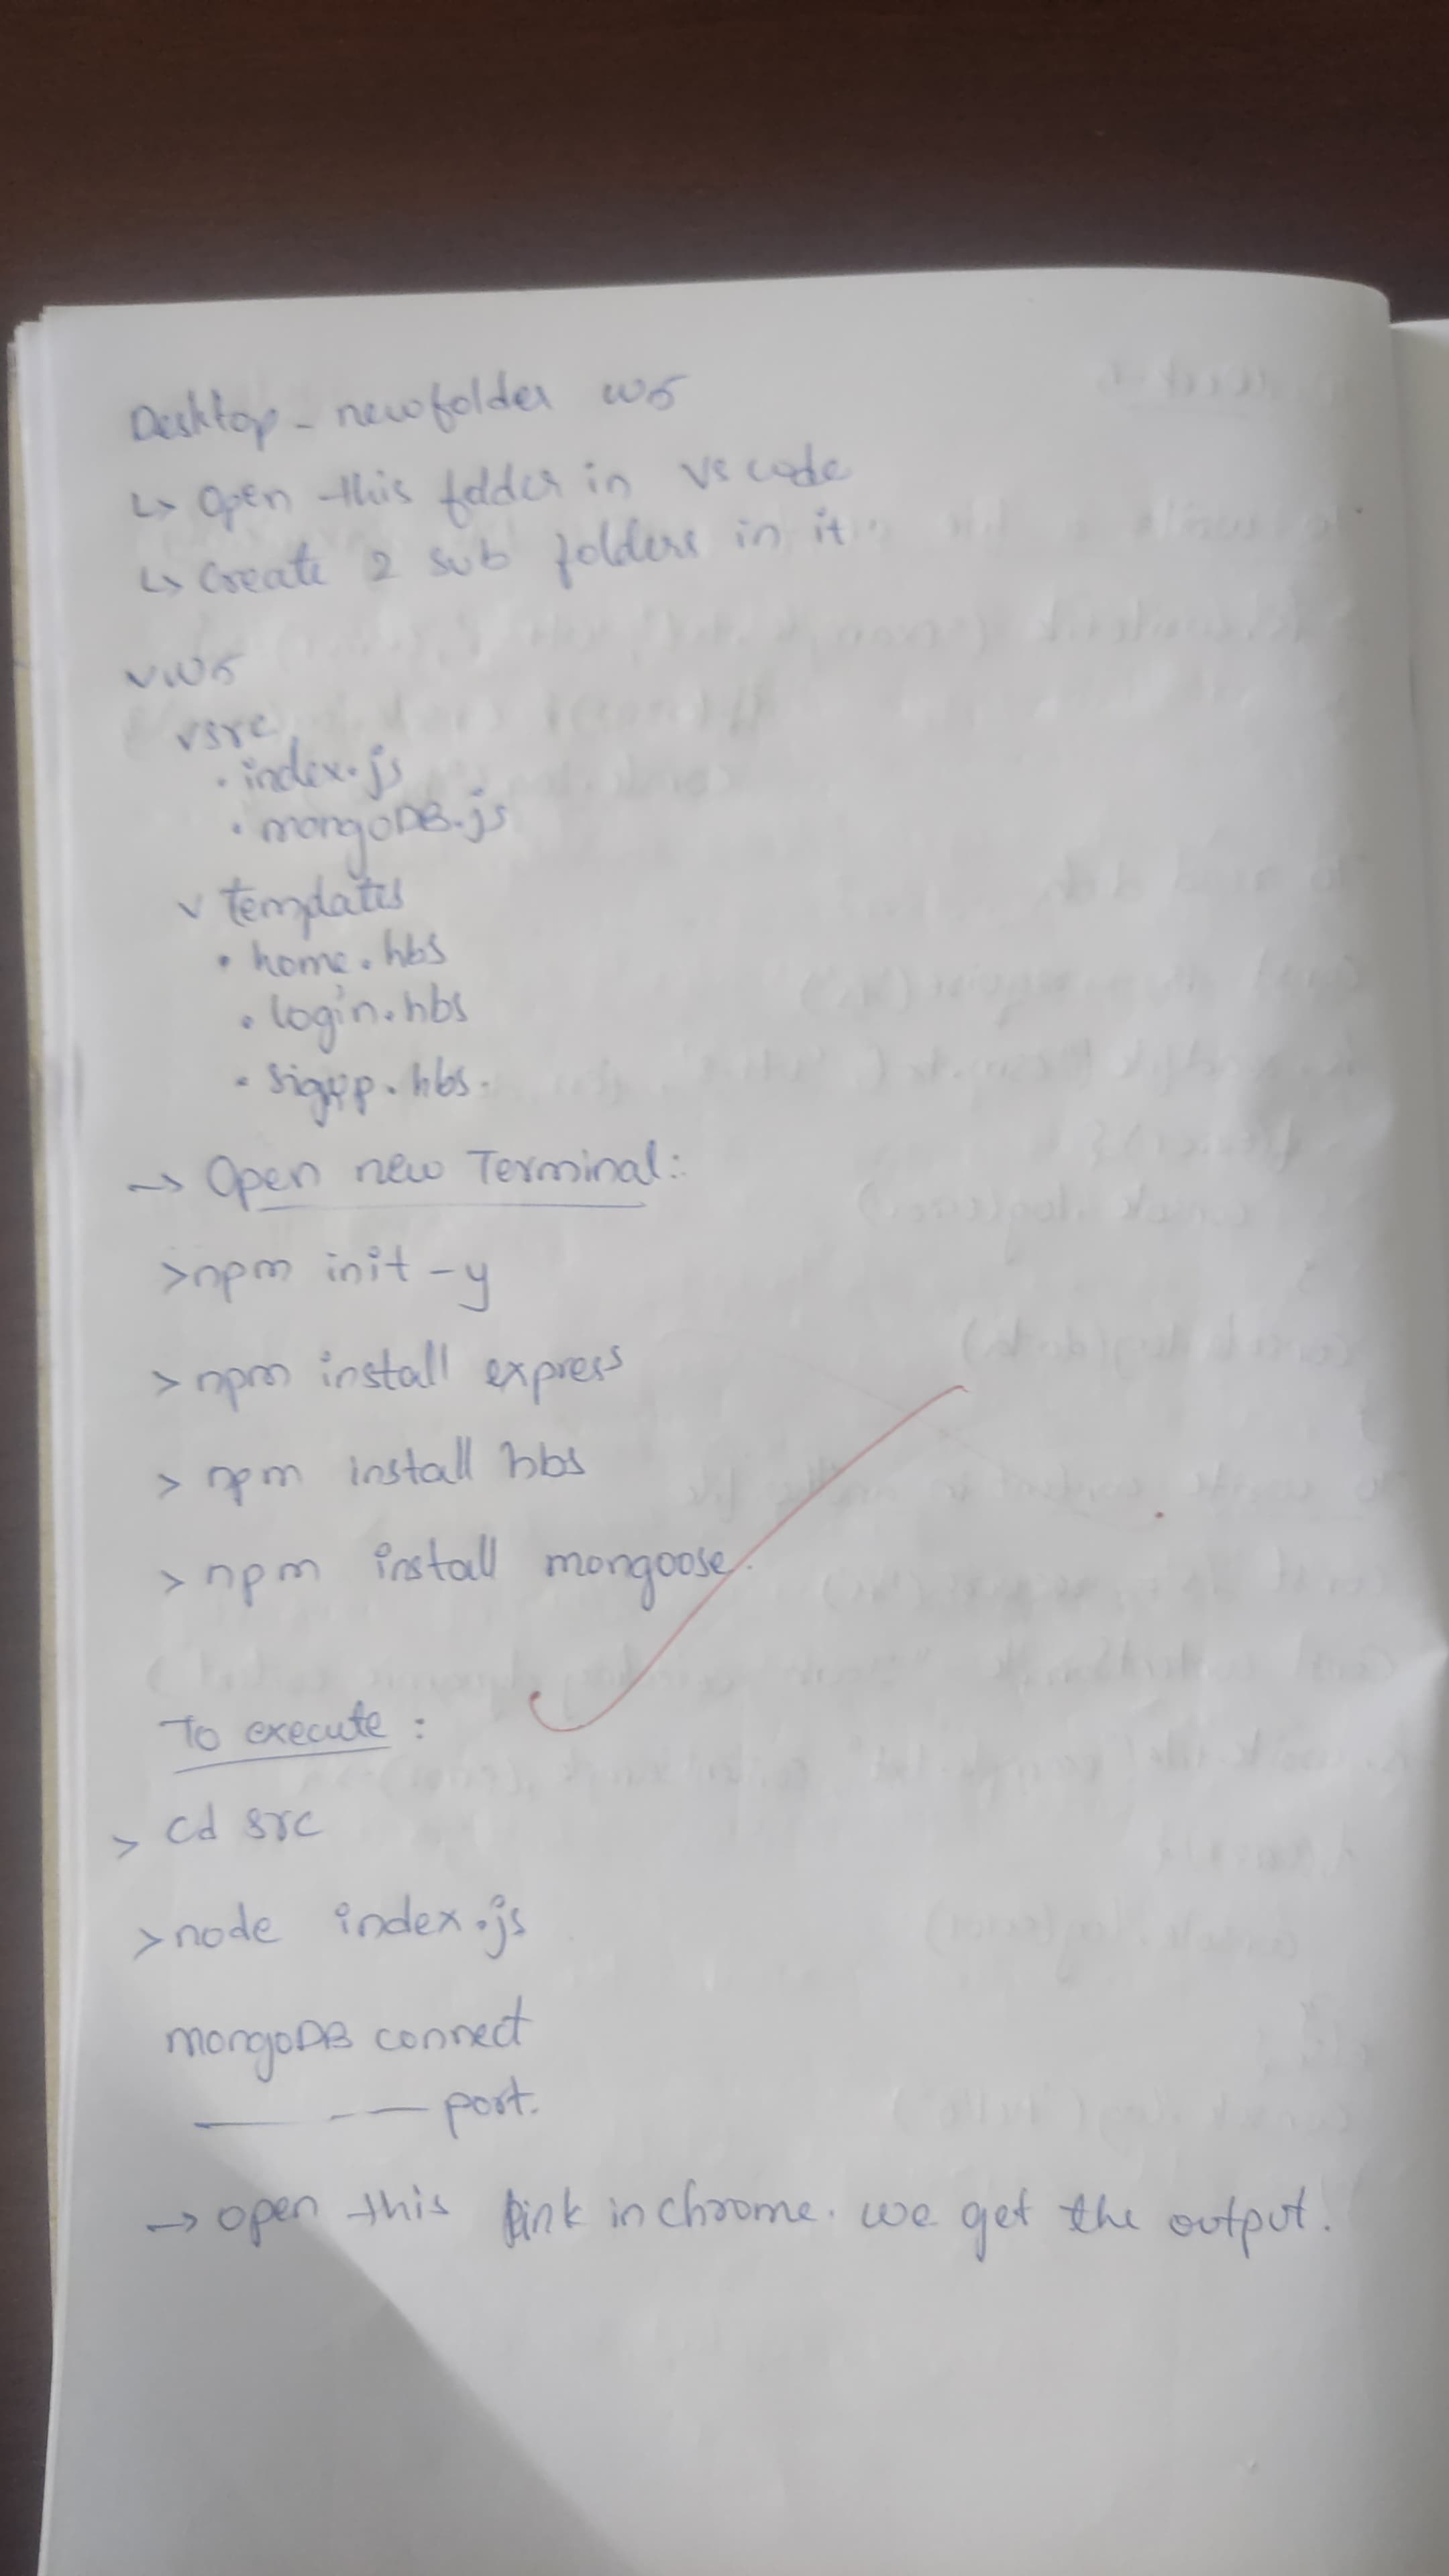 Desktop - newfolder w5
↳ Open this folder in vs code
↳ Create 2 sub folders in it
v w5
v src
• index.js
• mongoDB.js
v templates
• home.hbs
• login.hbs
• sigup.hbs.
→ Open new Terminal:
>npm init -y
> npm install express
> npm install hbs
> npm install mongoose.
To execute :
> cd src
>node index.js
mongoDB connect
——— port.
→ open this link in chrome. we get the output.